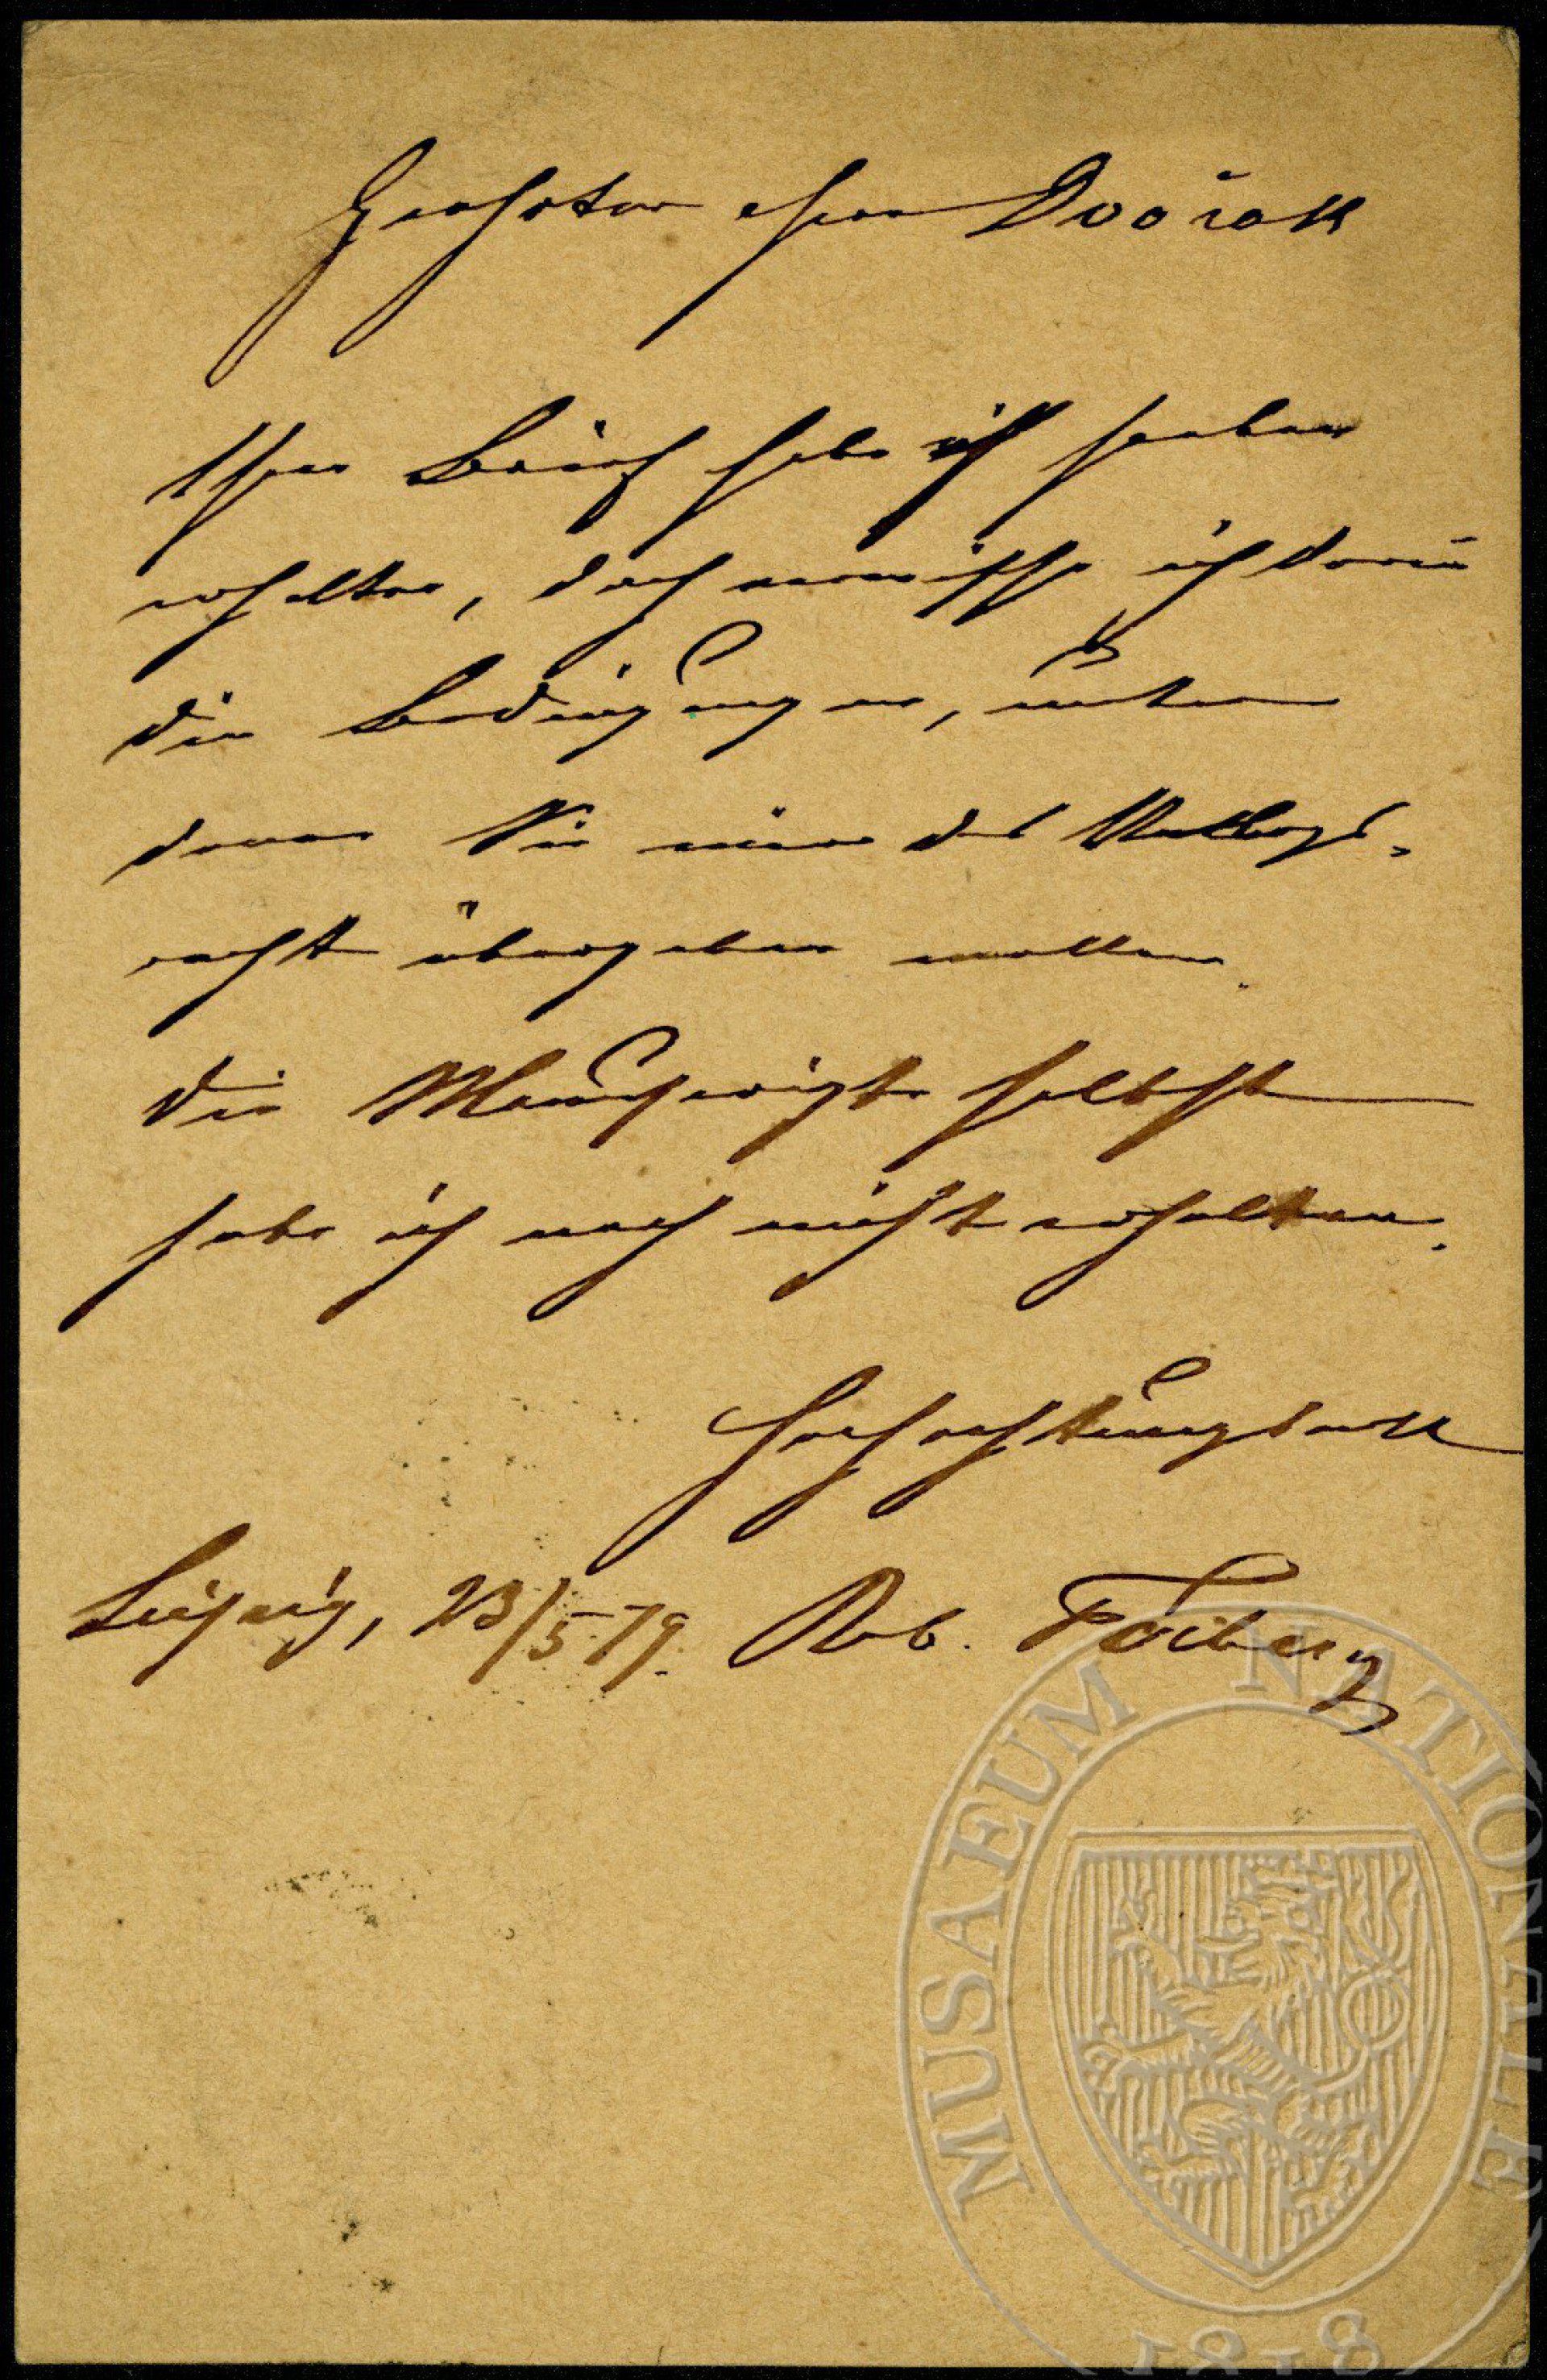 Geehrter Herr Dvořák
Ihren Brief habe ich soeben
erhalten, doch vermisse ich darin
die Bedingungen, unter
denen Sie mir das Verlags-
recht übergeben wollen.
Die Manuscripte selbst
habe ich noch nicht erhalten.
Hochachtungsvoll
Leipzig, 23/5 79. Rob. Forberg
MUSAEUM NATIONALE
1818